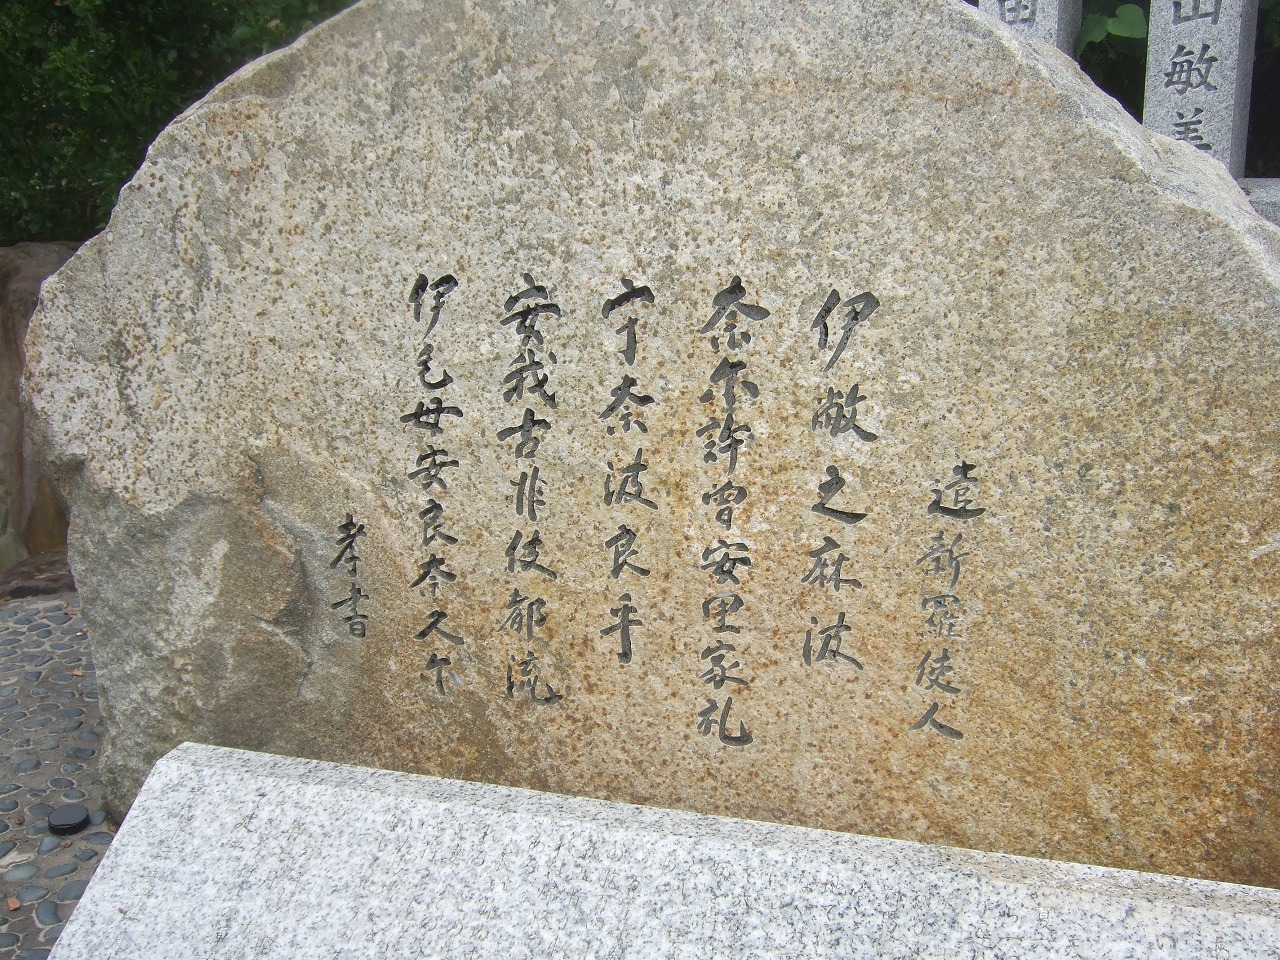 遣新羅使人
伊敝之麻波
奈尓許曽安里家礼
宇奈波良乎
安我古非伎都流
伊毛母安良奈久尓
孝書
山敏美